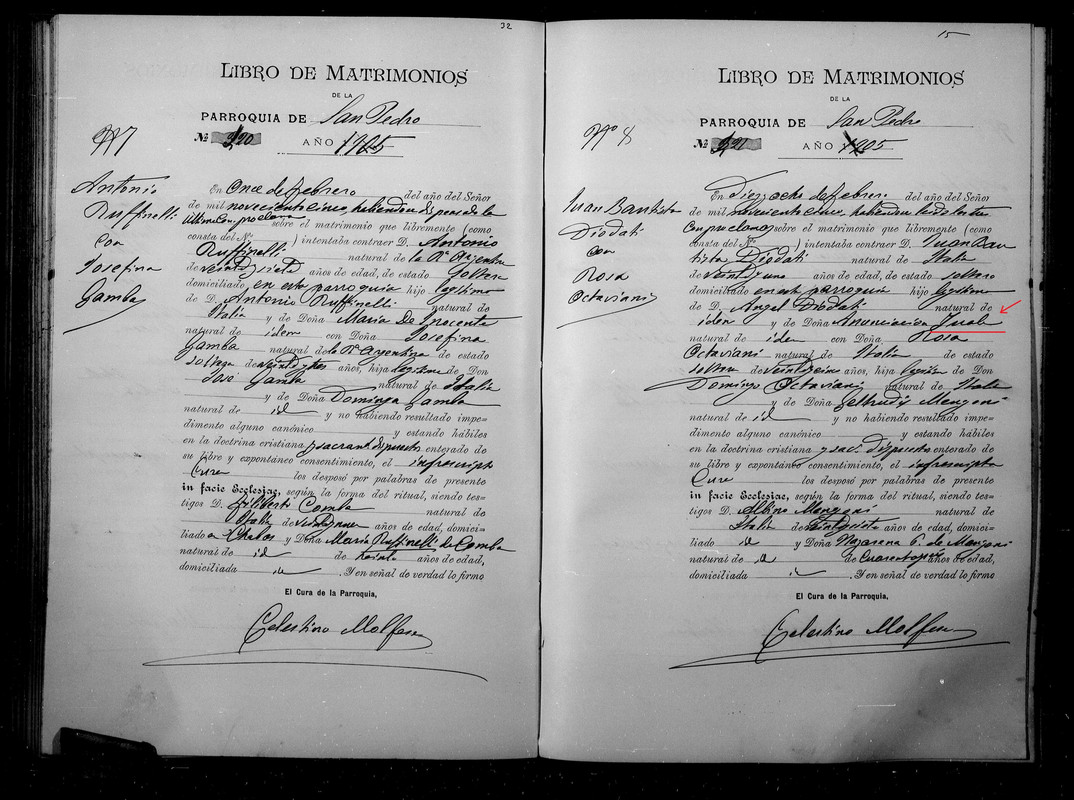 32
LIBRO DE MATRIMONIOS
DE LA
PARROQUIA DE San Pedro
Nº 7
Nº 320 AÑO 1905
Antonio
Ruffinelli
con
Josefina
Gamba
En Once de febrero del año del Señor
de mil novecientos cinco, habiendo despues de la
ultima Con. proclama sobre el matrimonio que libremente (como
consta del N.º ) intentaba contraer D. Antonio
Ruffinelli natural de la Rª Argentina
de veinte y siete años de edad, de estado Soltero
domiciliado en esta parroquia hijo legítimo
de D. Antonio Ruffinelli natural de
Italia y de Doña Maria De Inocenta
natural de idem con Doña Josefina
Gamba natural de la Rª Argentina de estado
soltera de veinte y tres años, hija legítima de Don
José Gamba natural de Italia
y de Doña Dominga Gamba
natural de id y no habiendo resultado impe-
dimento alguno canónico y estando hábiles
en la doctrina cristiana y sacrant. dispuestos enterado de
su libre y expontáneo consentimiento, el infrascripto
Cura los desposó por palabras de presente
in facie Ecclesiae, según la forma del ritual, siendo tes-
tigos D. Filiberto Comba natural de
Italia de años de edad, domici-
liado y Doña Maria Ruffinelli de Comba
natural de id de treinta años de edad,
domiciliada id . Y en señal de verdad lo firmo
El Cura de la Parroquia,
Celestino
15
LIBRO DE MATRIMONIOS
DE LA
PARROQUIA DE San Pedro
Nº 8
Nº 321 AÑO 1905
Juan Bautista
Diodati
con
Rosa
Octaviani
En Diez ocho de febrero del año del Señor
de mil novecientos cinco, habiendo
Con proclama sobre el matrimonio que libremente (como
consta del N.º ) intentaba contraer D. Juan Bau
tista Diodati natural de Italia
de veintiuno años de edad, de estado soltero
domiciliado en esta parroquia hijo legítimo
de D. Angel Diodati natural de
idem y de Doña Anunciacion
natural de idem con Doña Rosa
Octaviani natural de Italia de estado
soltera de veinticinco años, hija legítima de Don
Domingo Octaviani natural de Italia
y de Doña Geltrudis Mengoni
natural de id y no habiendo resultado impe-
dimento alguno canónico y estando hábiles
en la doctrina cristiana y sac. dispuestos enterado de
su libre y expontáneo consentimiento, el infrascripto
Cura los desposó por palabras de presente
in facie Ecclesiae, según la forma del ritual, siendo tes-
tigos D. Albino Mengoni natural de
Italia de años de edad, domici-
liado id y Doña Nazarena P. de Mengoni
natural de id de años de edad,
domiciliada id . Y en señal de verdad lo firmo
El Cura de la Parroquia,
Celestino